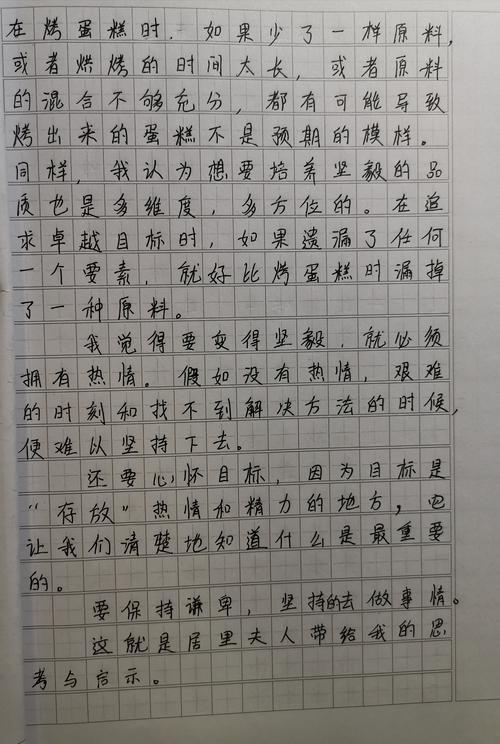 在烤蛋糕时,如果少了一样原料,
或者烘烤的时间太长,或者原料
的混合不够充分,都有可能导致
烤出来的蛋糕不是预期的模样。
同样,我认为想要培养坚毅的品
质也是多维度,多方位的。在追
求卓越目标时,如果遗漏了任何
一个要素,就好比烤蛋糕时漏掉
了一种原料。
我觉得要变得坚毅,就必须
拥有热情。假如没有热情,艰难
的时刻和找不到解决方法的时候,
便难以坚持下去。
还要心怀目标,因为目标是
“存放”热情和精力的地方,它
让我们清楚地知道什么是最重要
的。
要保持谦卑,坚持的去做事情。
这就是居里夫人带给我的思
考与启示。